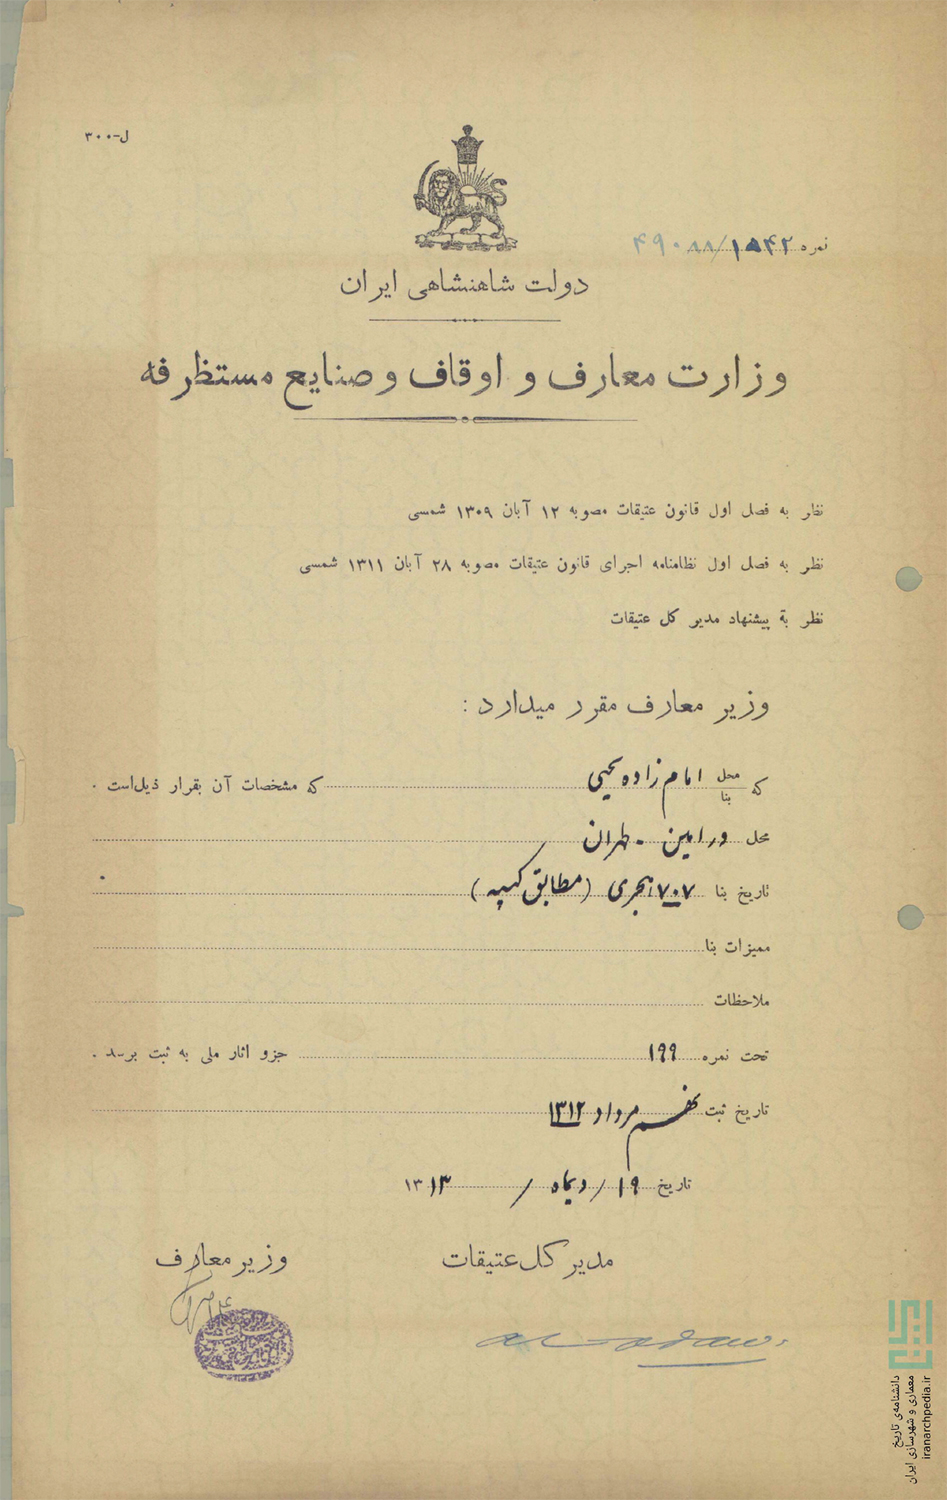 ل-۳۰۰
نمره ۱۵۴۲/۴۹۰۸۸
دولت شاهنشاهی ایران
وزارت معارف و اوقاف و صنایع مستظرفه
نظر به فصل اول قانون عتیقات مصوبه ۱۲ آبان ۱۳۰۹ شمسی
نظر به فصل اول نظامنامه اجرای قانون عتیقات مصوبه ۲۸ آبان ۱۳۱۱ شمسی
نظر بة پیشنهاد مدیر کل عتیقات
وزیر معارف مقرر میدارد :
که محل بنا امام زاده یحیی که مشخصات آن بقرار ذیل‌است .
محل ورامین - طهران
تاریخ بنا ۷۰۷ هجری (مطابق کتیبه)
ممیزات بنا
ملاحظات
تحت نمره ۱۹۹ جزو اثار ملی به ثبت برسد .
تاریخ ثبت نهم مرداد ۱۳۱۲
تاریخ ۱۹ / دیماه / ۱۳۱۳
مدیر کل عتیقات
وزیر معارف
دانشنامه‌ی تاریخ
معماری و شهرسازی ایران
iranarchpedia.ir